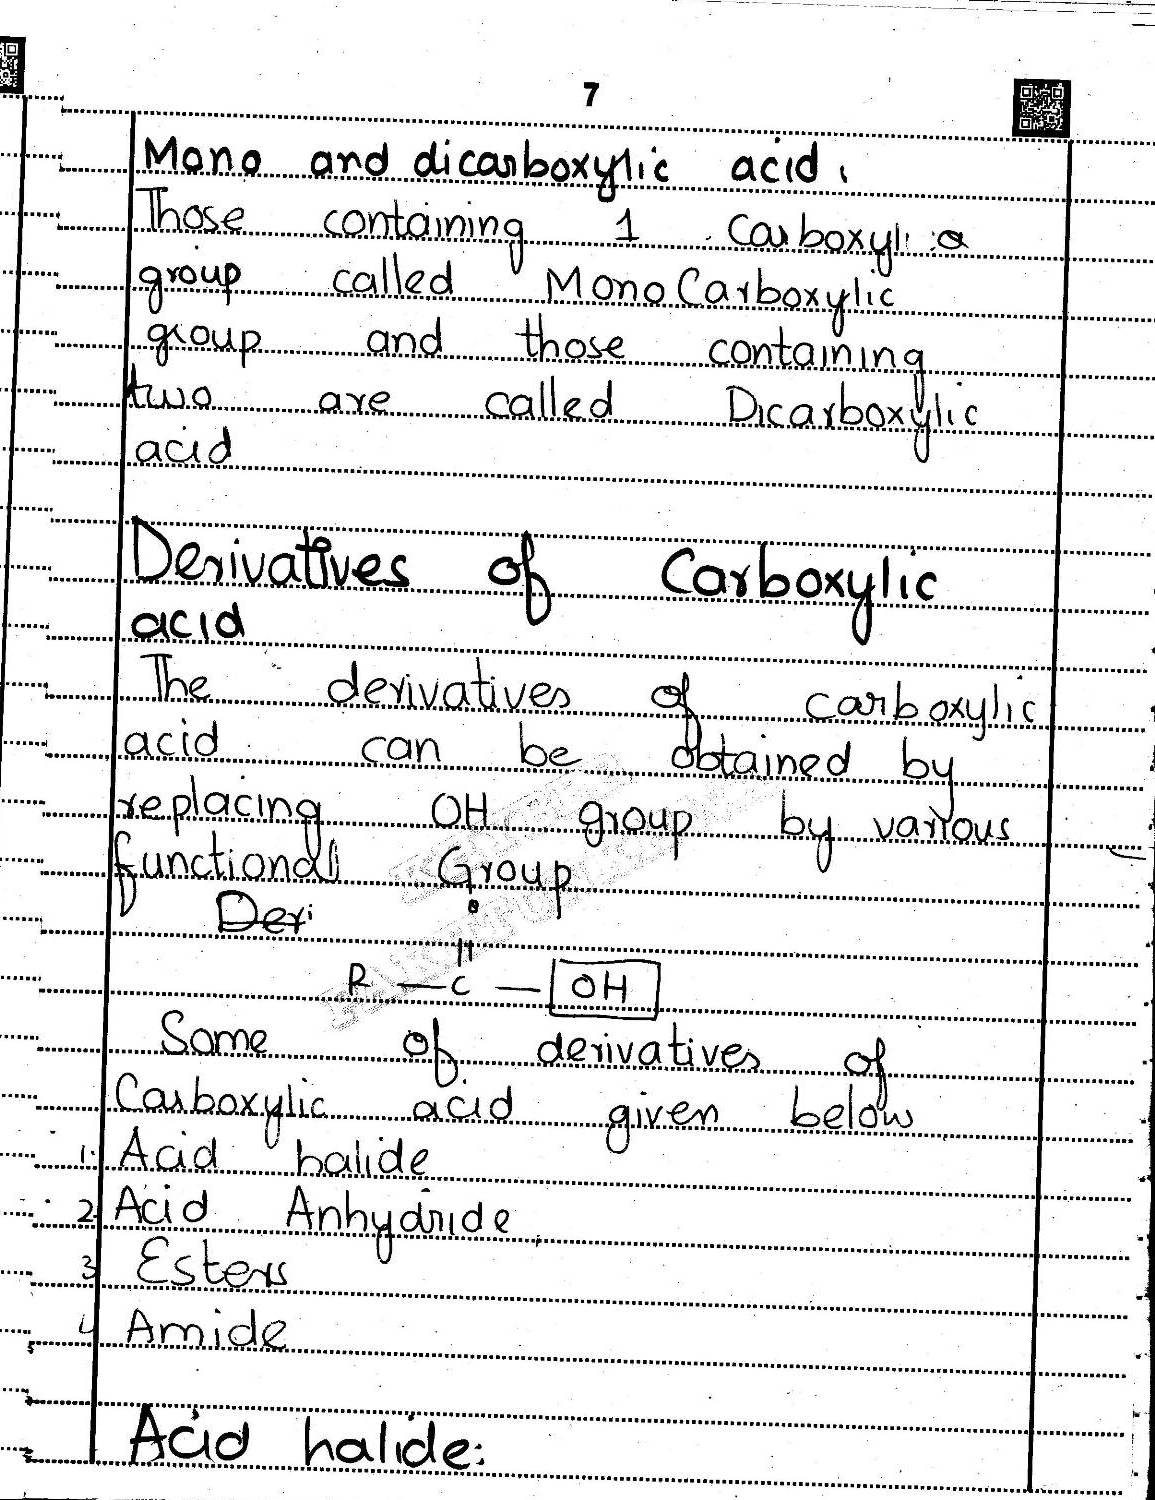 7
Mono and dicarboxylic acid.
Those containing 1 Carboxylic
group called Mono Carboxylic
group and those containing
two are called Dicarboxylic
acid
Derivatives of Carboxylic
acid
The derivatives of carboxylic
acid can be obtained by
replacing OH group by various
functional Group
Deri
O
||
R — C — OH
Some of derivatives of
Carboxylic acid given below
1. Acid halide
2 Acid Anhydride
3 Esters
4 Amide
Acid halide: